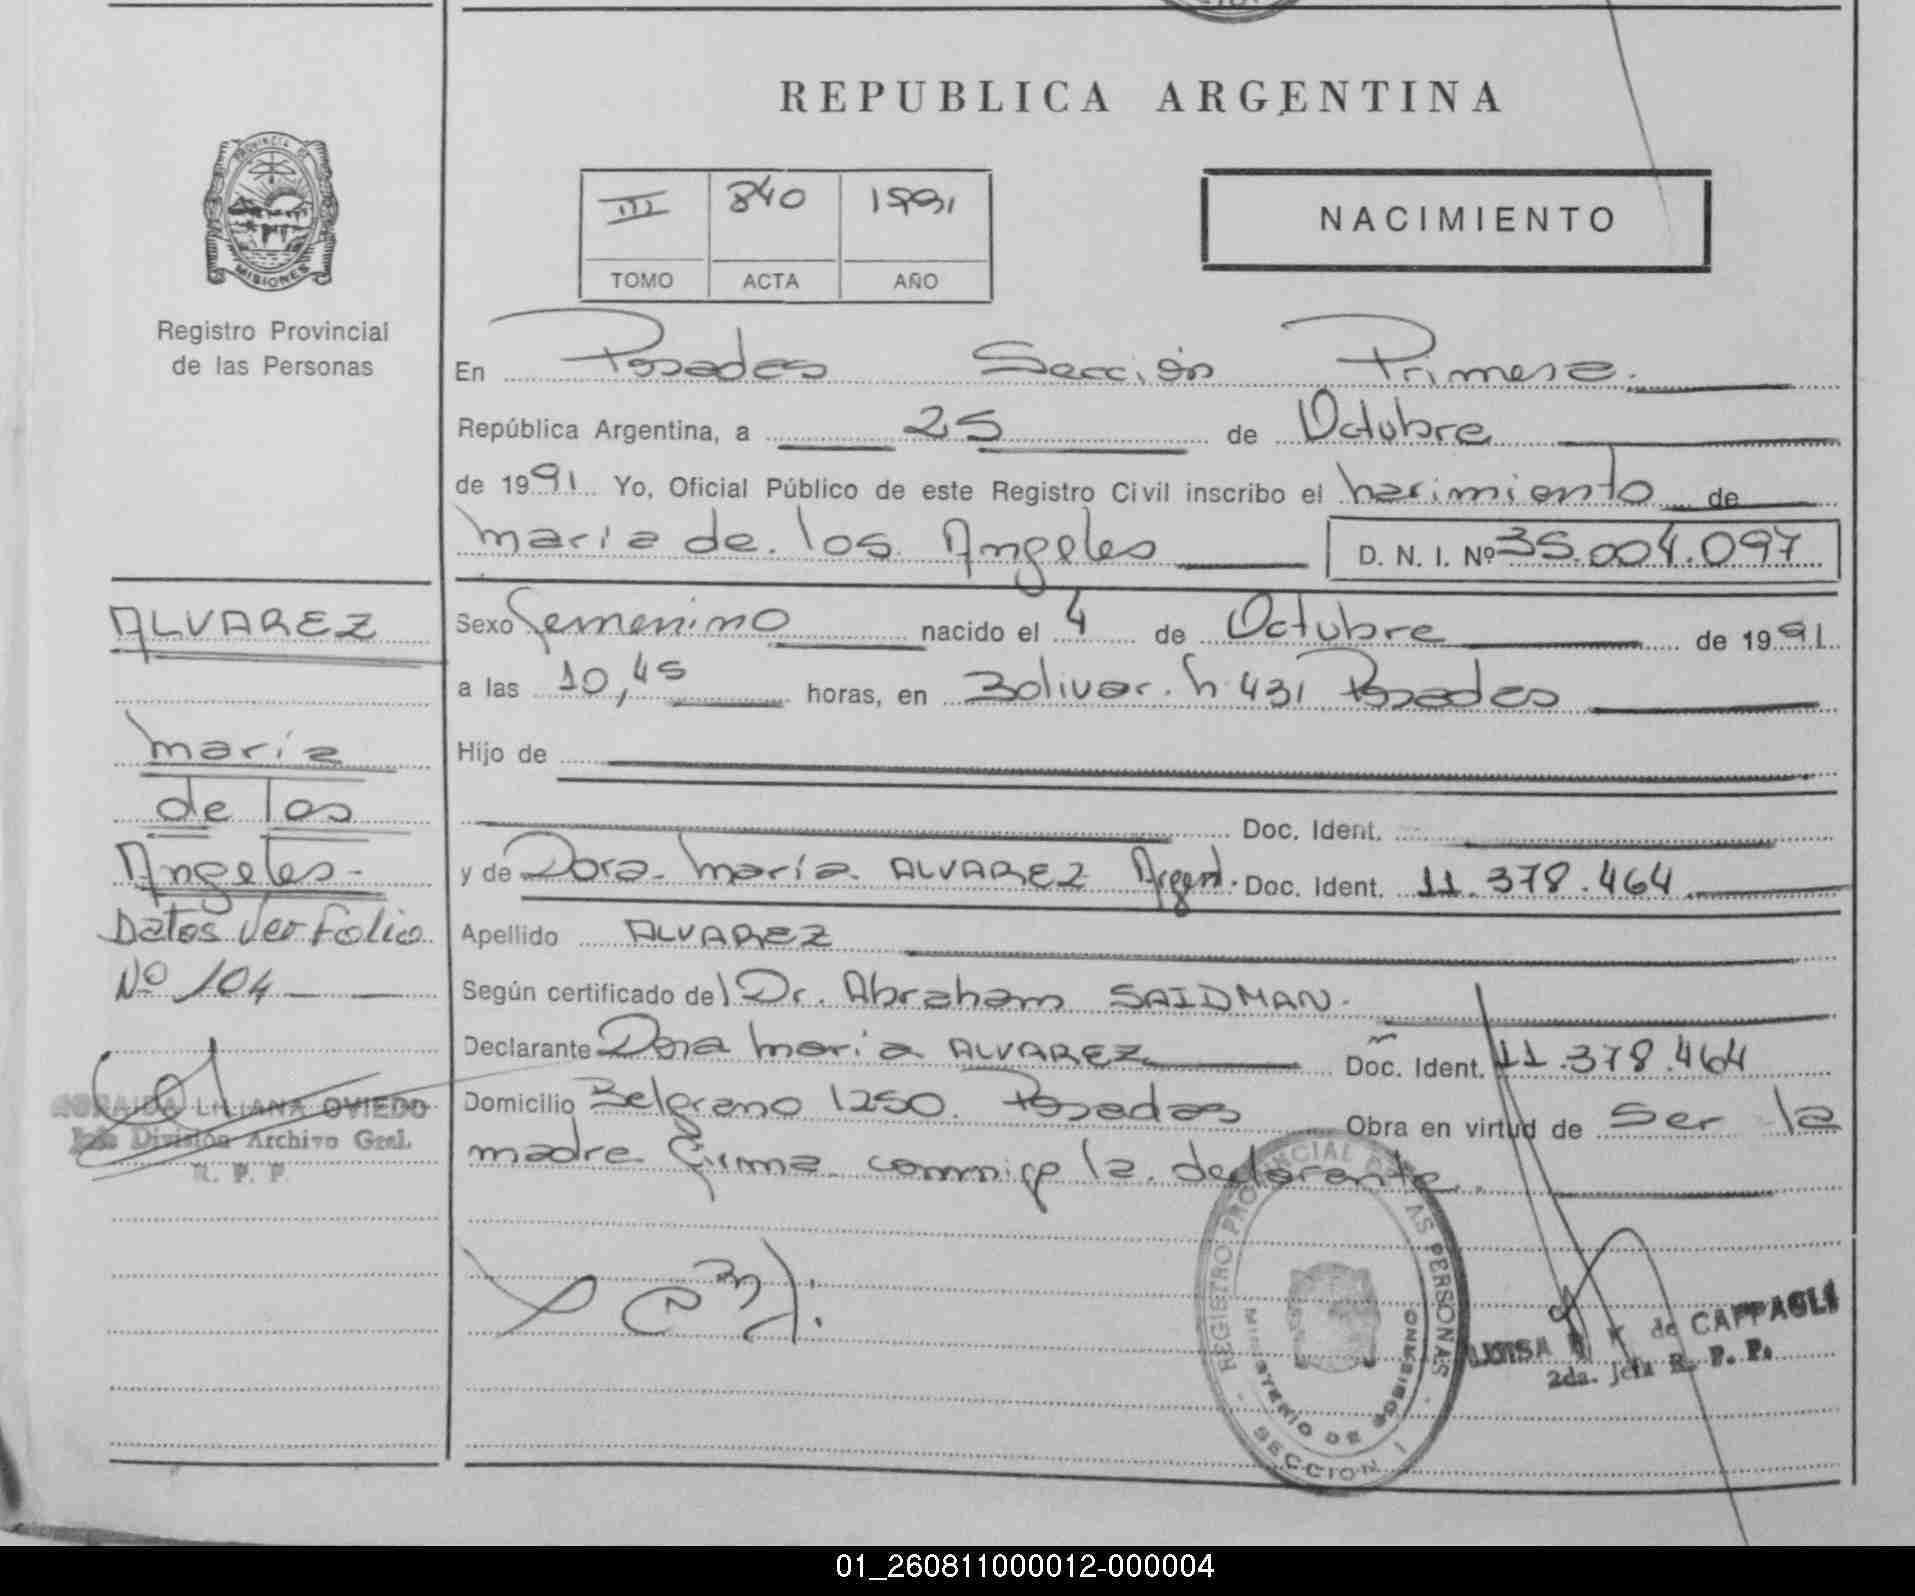 REPUBLICA ARGENTINA
PROVINCIA DE
MISIONES
Registro Provincial
de las Personas
III 840 1991
TOMO ACTA AÑO
NACIMIENTO
En Posadas Sección Primera.
República Argentina, a 25 de Octubre
de 1991 Yo, Oficial Público de este Registro Civil inscribo el nacimiento de
maria de los Angeles D. N. I. Nº 35.004.097
ALVAREZ
maría
de los
Angeles-
Datos Ver folio
Nº 104
LILIANA OVIEDO
Jefe División Archivo Gral.
R. P. P.
Sexo femenino nacido el 4 de Octubre de 1991
a las 10,45 horas, en Bolivar. n. 431 Posadas
Hijo de
Doc. Ident.
y de Dora maría ALVAREZ Argent. Doc. Ident. 11.378.464
Apellido ALVAREZ
Según certificado del Dr. Abraham SAIDMAN.
Declarante Dora maria ALVAREZ Doc. Ident. 11.378.464
Domicilio Belgrano 1250. Posadas Obra en virtud de ser la
madre firma conmigo la declarante.
REGISTRO PROVINCIAL DE LAS PERSONAS
MINISTERIO DE GOBIERNO
SECCION I
LUISA de CAPPAGLI
2da. Jefa R. P. P.
01_260811000012-000004